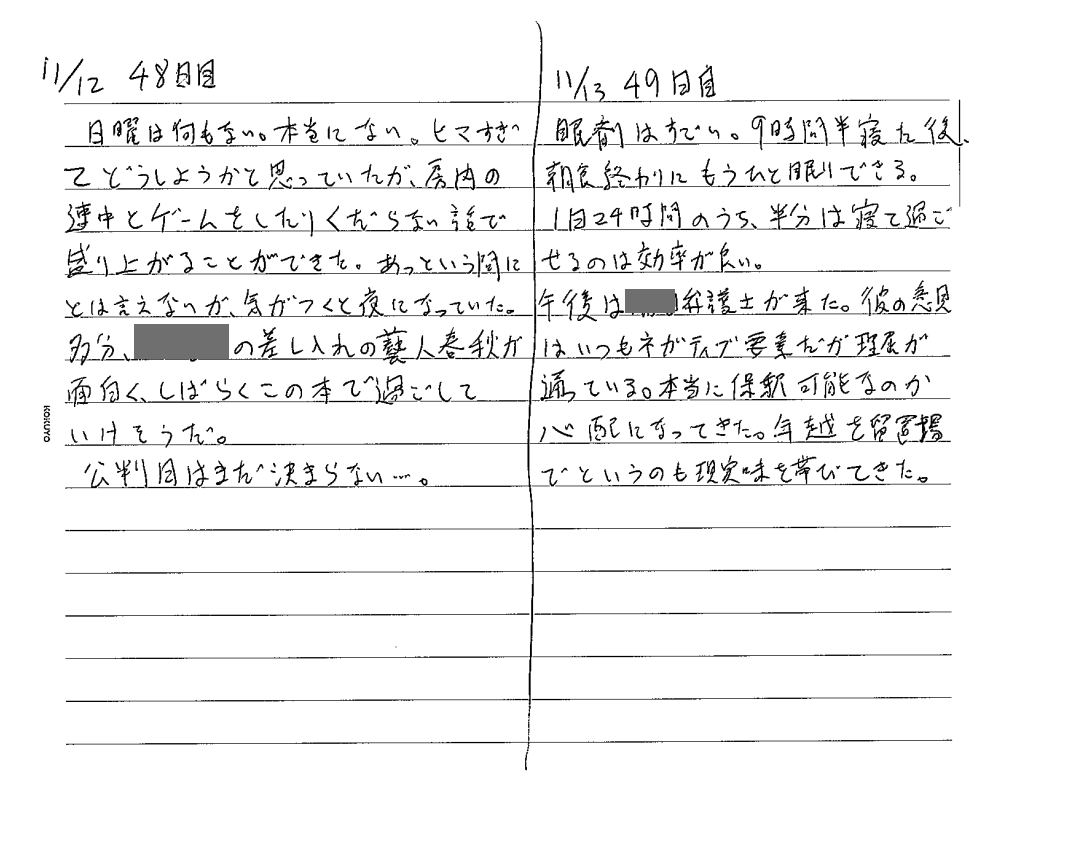 11/12 48日目
日曜は何もない。本当にない。ヒマすぎ
てどうしようかと思っていたが、房内の
連中とゲームをしたりくだらない話で
盛り上がることができた。あっという間に
とは言えないが、気がつくと夜になっていた。
多分、の差し入れの藝人春秋が
面白く、しばらくこの本で過ごして
いけそうだ。
公判日はまだ決まらない…。
KOKUYO
11/13 49日目
眠剤はすごい。9時間半寝た後、
朝食終わりにもうひと眠りできる。
1日24時間のうち、半分は寝て過ご
せるのは効率が良い。
午後は弁護士が来た。彼の意見
はいつもネガティブ要素だが理屈が
通っている。本当に保釈可能なのか
心配になってきた。年越を留置場
でというのも現実味を帯びてきた。